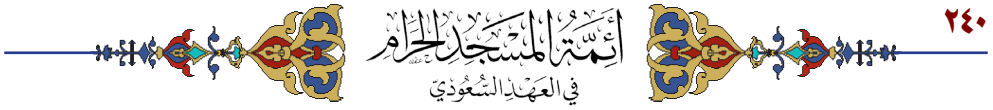 ٢٤٠
أَئِمَّةُ المَسْجِدِ الحَرَامِ
فِي العَهْدِ السُّعُودِيِّ